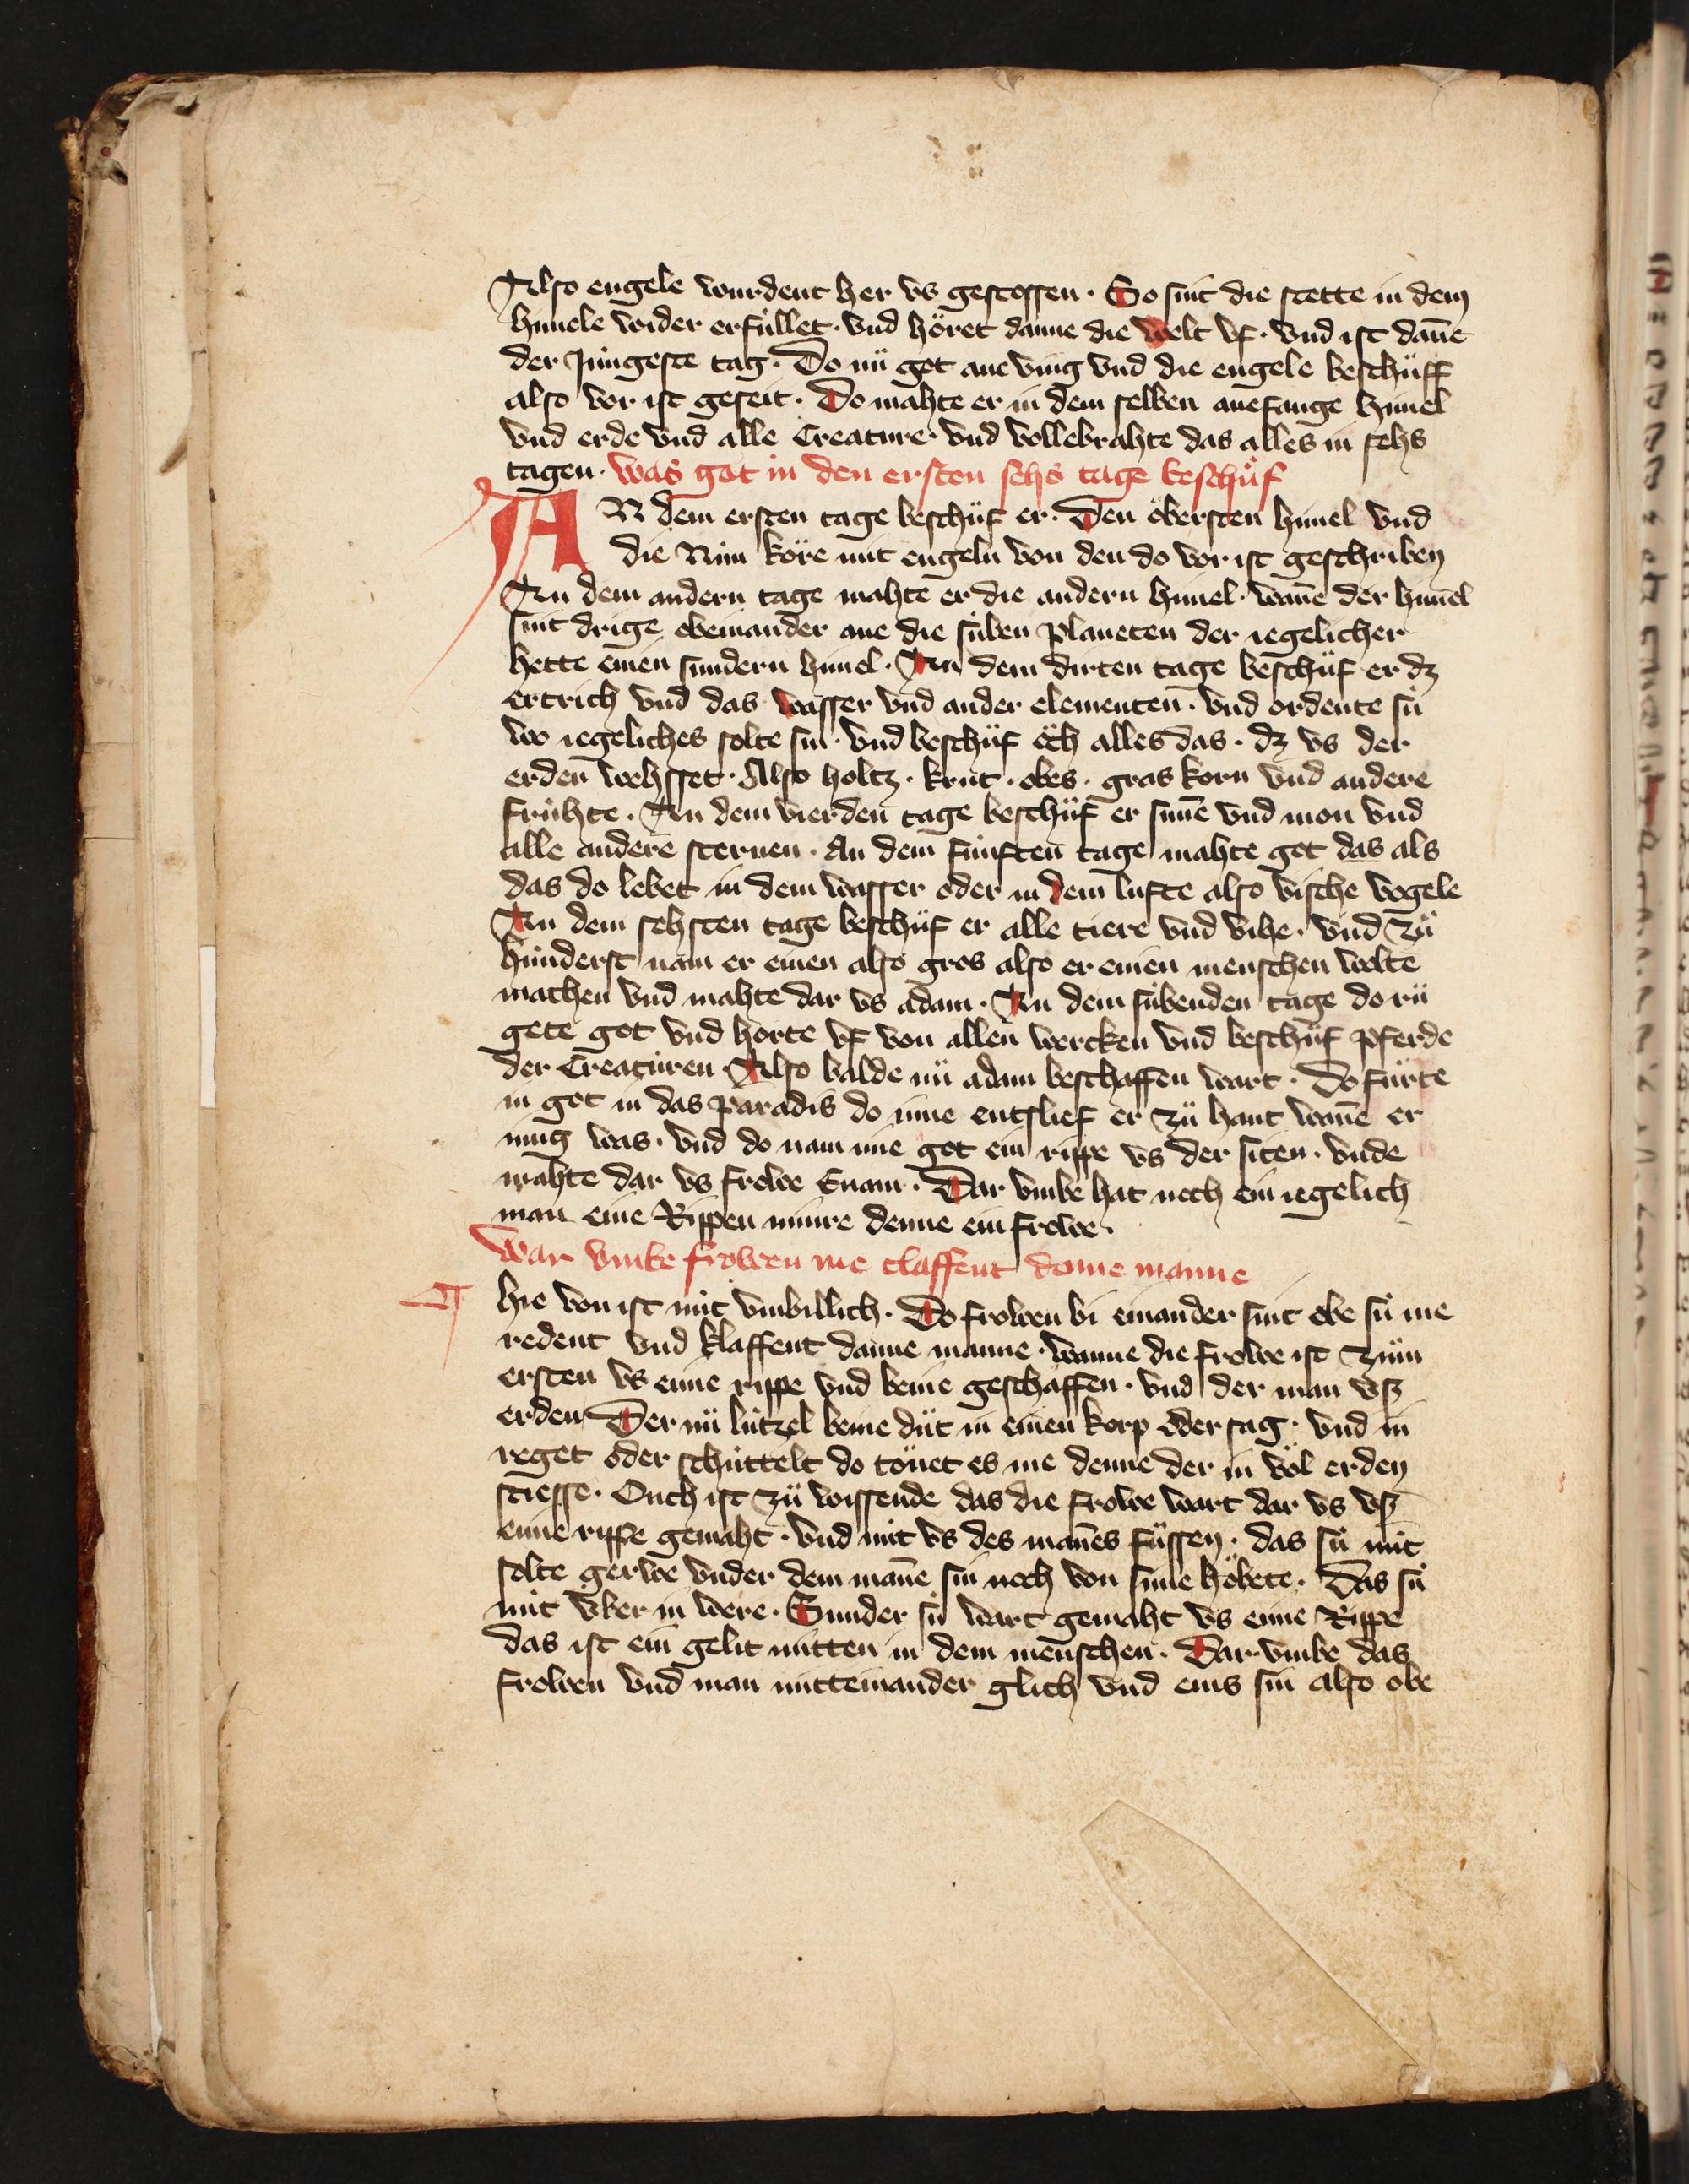 Also engele wurdent her vs gestossen · So sint die stette in dem
himele wider erfüllet · vnd höret danne die welt vf · vnd ist dan̄e
der Jüngeste tag · Do nü got ane ving vnd die engele beschüff
also vor ist geseit · Do mahte er in dem selben anefange himel
vnd erde vnd alle Creature · vnd vollebrahte das alles in sehs
tagen · was got in den ersten sehs tage beschüf
AN dem ersten tage beschüf er · Den öbersten himel vnd
die Nün köre mit engeln von den do vor ist geschriben
An dem andern tage mahte er die andern himel · wan̄e der himel
sint drige obeinander ane die süben planeten der iegelicher
hette einen sundern himel · An dem dirten tage beschüf er dz
ertrich vnd das wasser vnd ander elementen · vnd ordente sü
wo iegeliches solte sin · vnd beschüf öch alles das · dz vs der
erden wehsset · Also holtz · krut · obes · gras korn vnd andere
frühte · An dem vierden tage beschüf er sun̄e vnd mon vnd
alle andere sternen · An dem fünften tage mahte got das als
das do lebet in dem wasser oder in dem lufte also vische vogele
An dem sehsten tage beschüf er alle tiere vnd vihe · vnd zü
hünderst nam er einen also gros also er einen menschen wolte
machen vnd mahte dar vs adam · An dem sübenden tage do rü
gete got vnd horte vf von allen wercken vnd beschüf pferde
der Creaturen · Also balde nü adam beschaffen wart · Do fürte
in got in das paradis do inne entslief er zü hant wan̄e er
müg was · vnd do nam ime got ein rippe vs der siten · vnde
mahte dar vs frowe Euam · Dar vmbe hat noch ein iegelich
man eine Rippen minre denne ein frowe ·
War vmbe frowen me claffent danne manne
hie von ist nüt vnbillich · Do frowen bi einander sint obe sü me
redent vnd klaffent danne manne · wanne die frowe ist zum
ersten vs eime rippe vnd beine geschaffen · vnd der man vsz
erden Der nü lützel beine düt in einen korp oder sag · vnd in
reget oder schüttelt do tönet es me denne der in völ erden
stiesse · Ouch ist zü wissende das die frowe wart dar vs vsz
eime rippe gemaht · vnd nüt vs des man̄es füssen · das sü nüt
solte gerwe vnder dem man̄e sin noch von sime höbete · Das sü
nüt vber in were · Sunder sü wart gemaht vs eime Rippe
das ist ein gelit mitten in dem menschen · Dar vmbe das
frowen vnd man mitteinander glich vnd eins sin also obe